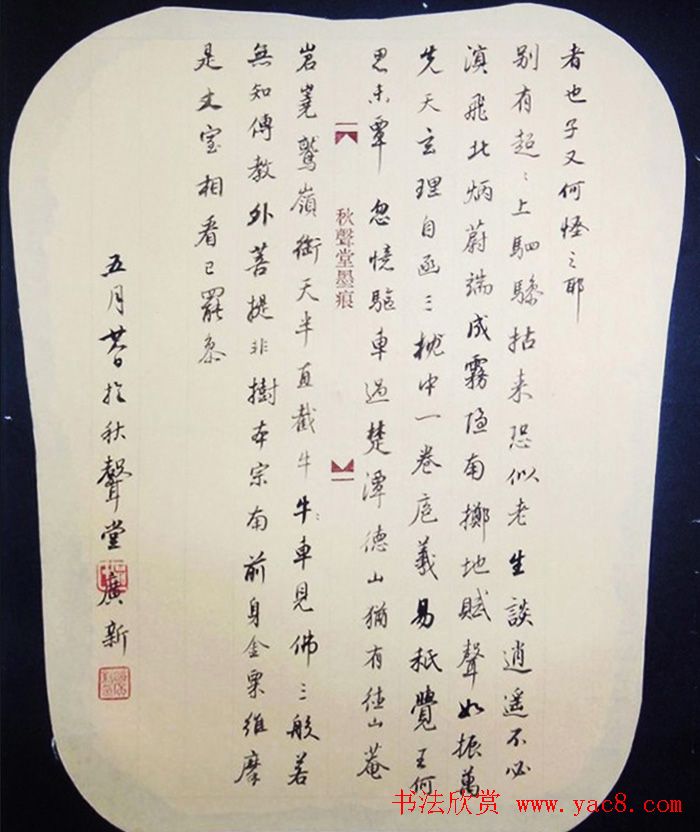 者也子又何怪之耶
别有超〻上駟驂拈来恐似老生談逍遥不必
溟飛北炳蔚端成霧隐南擲地賦聲如振萬
先天玄理自函三枕中一卷庖羲易秖覺王何
思未覃 忽憶驅車過楚潭德山猶有徑山菴
秋聲堂墨痕
岧嶤鷲嶺銜天半直截牛牛車見佛三般若
無知傳教外菩提非樹本宗南前身金粟維摩
是丈室相看已罷叅
五月廿日於秋聲堂 廣新
书法欣赏 www.yac8.com